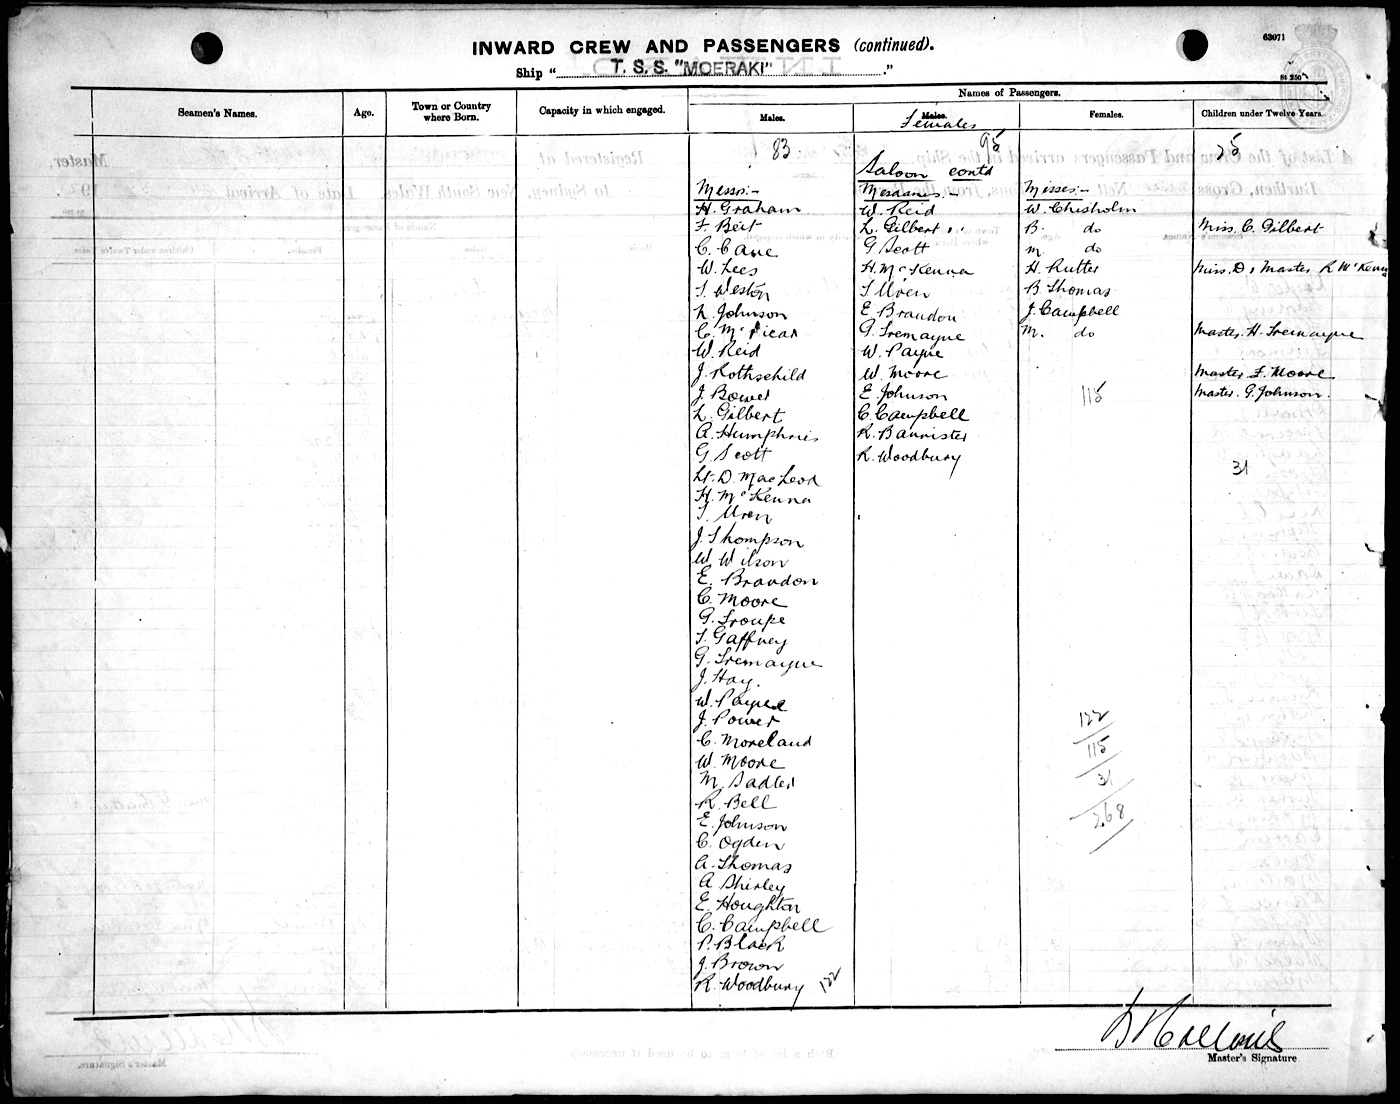 63071
INWARD CREW AND PASSENGERS (continued).
Ship "T. S. S. "MOERAKI"."
St 250
Names of Passengers.
Seamen's Names.
Age.
Town or Country where Born.
Capacity in which engaged.
Males.
Males.
Females
Females.
Children under Twelve Years.
83
95
25
Saloon contd
Messrs:-
H. Graham
F. Beit
C. Cane
W. Lees
T. Weston
N. Johnson
C. McVicar
W. Reid
J. Rothschild
J. Bower
L. Gilbert
A. Humphries
G. Scott
Lt. D. MacLeod
H. McKenna
T. Uren
J. Thompson
W. Wilson
E. Brandon
C. Moore
G. Troupe
T. Gaffney
G. Tremayne
J. Hay.
W. Payne
J. Power
C. Moreland
W. Moore
M. Sadler
R. Bell
E. Johnson
C. Ogden
A. Thomas
A Shirley
E. Houghton
C. Campbell
P. Black
J. Brown
R. Woodbury
122
Mesdames:-
W. Reid
L. Gilbert
G Scott
H. McKenna
T Uren
E Brandon
G. Tremayne
W. Payne
W. Moore
E Johnson
C. Campbell
R. Bannister
R. Woodbury
Misses:-
W. Chisholm
B. do
M. do
H. Rutter
B Thomas
J. Campbell
M. do
115
122
115
31
268
Miss. C. Gilbert
Miss. D & Master R McKenna
Master. H. Tremayne
Master. F. Moore
Master. G. Johnson.
31
Master's Signature